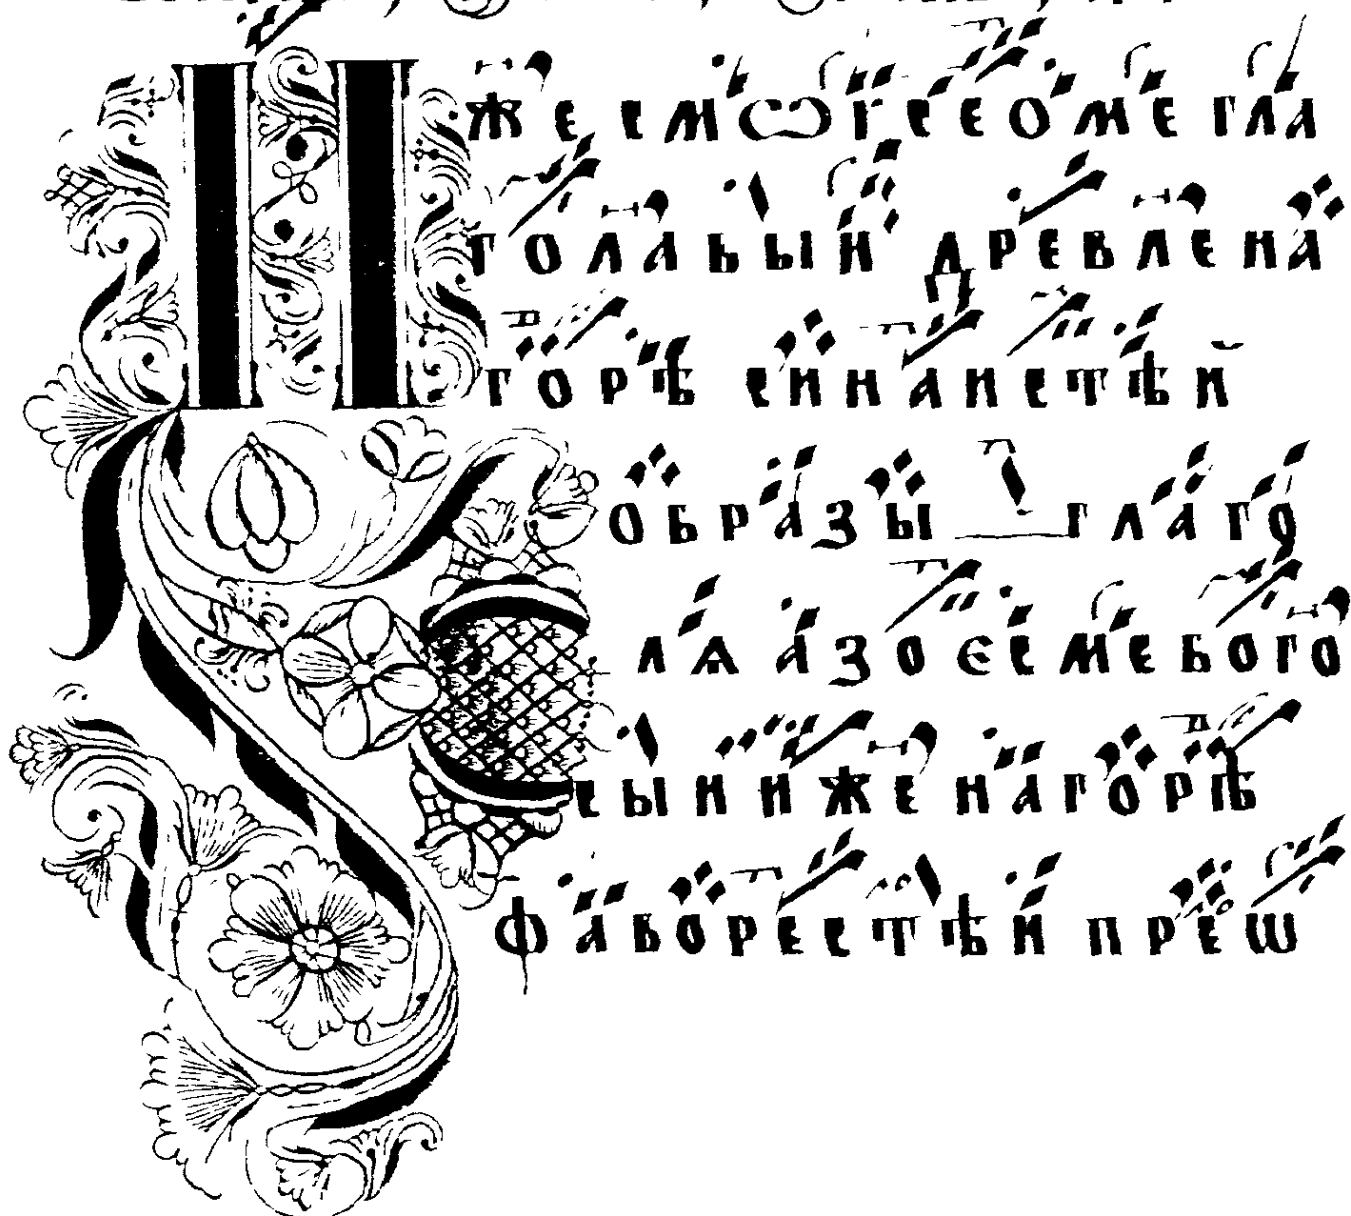 И
же ем ѡ г е е о м е г л а
г о л а в ы й д р е в л е н а
г о р ѣ с и н а и с т ѣ й
о б р а з ы г л а г о
л ѧ а з о є е м е б о г о
с ы й и ж е н а г о р ѣ
ф а в о р с с т ѣ й п р е ѡ